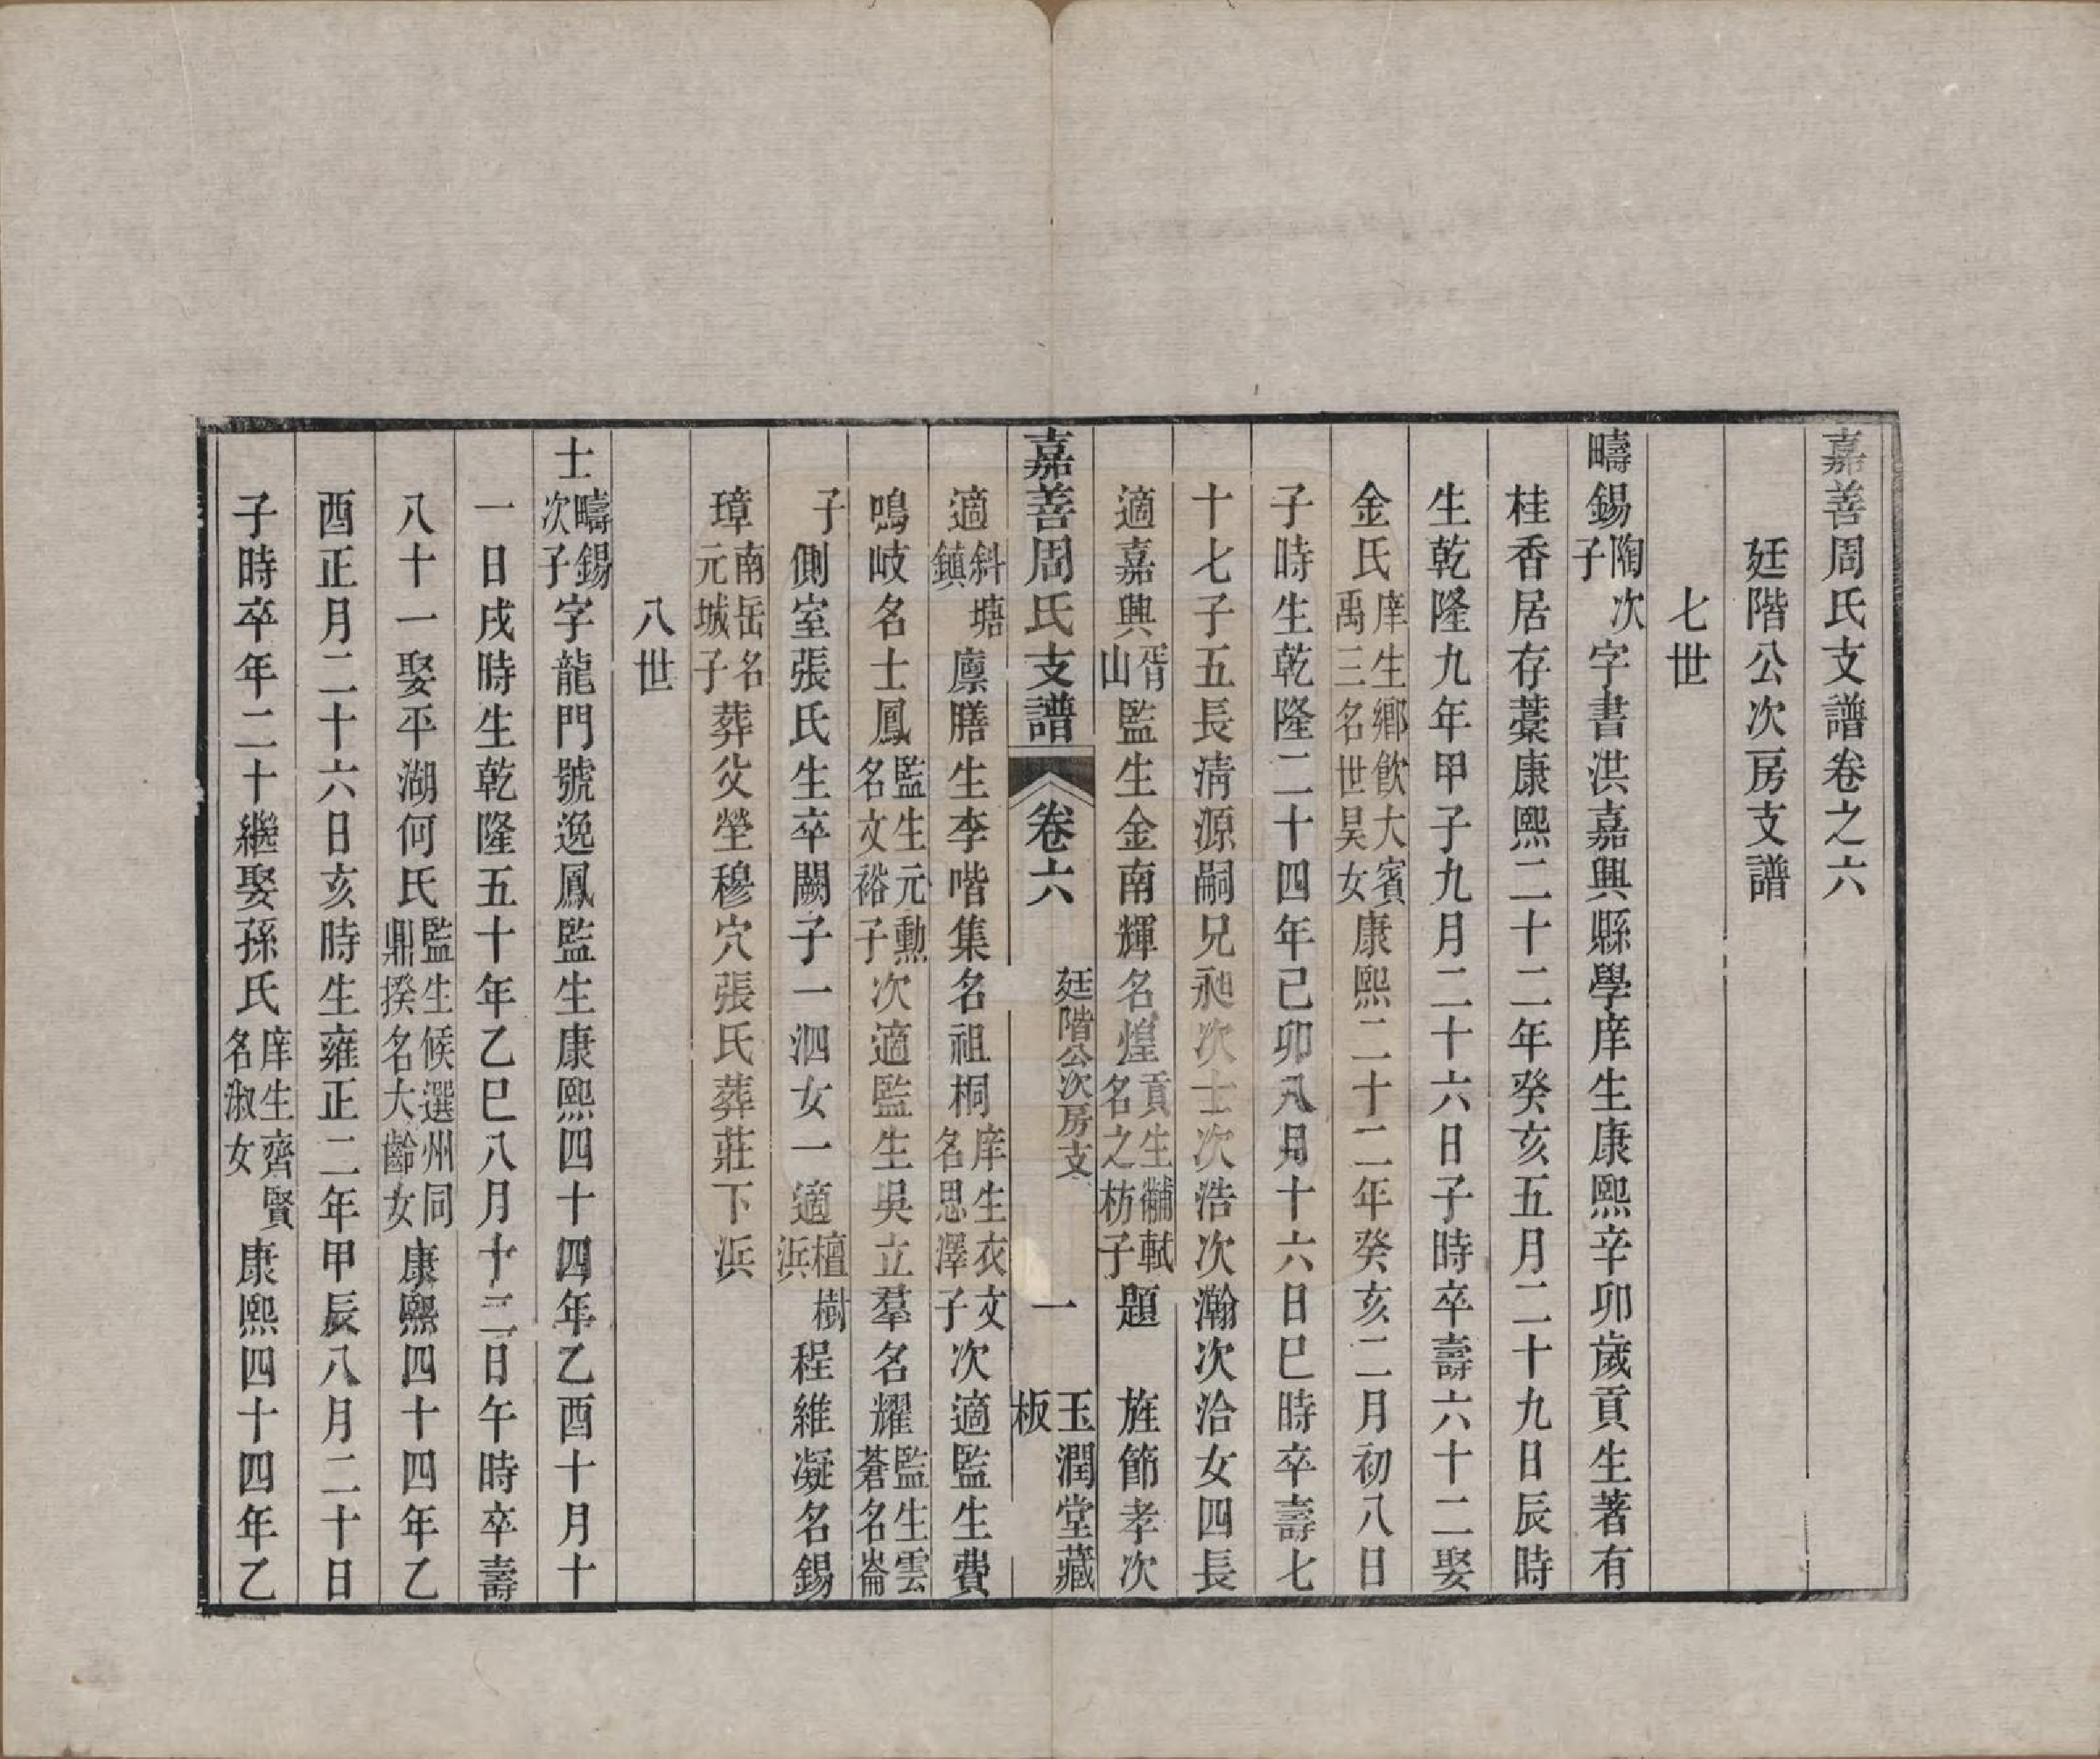 嘉善周氏支譜卷之六
廷階公次房支譜
七世
疇錫陶次子字書洪嘉興縣學庠生康熙辛卯歲貢生著有
桂香居存藁康熙二十二年癸亥五月二十九日辰時
生乾隆九年甲子九月二十六日子時卒壽六十二娶
金氏庠生鄉飲大賓禹三名世昊女康熙二十二年癸亥二月初八日
子時生乾隆二十四年己卯八月十六日巳時卒壽七
十七子五長淸源嗣兄昶次士次浩次瀚次洽女四長
適嘉興胥山監生金南輝名煌貢生黼軾名之枋子題 旌節孝次
嘉善周氏支譜 卷六 廷階公次房支 一 玉潤堂藏板
適斜塘鎮廩膳生李喈集名祖桐庠生衣文名思澤子次適監生費
鳴岐名士鳳監生元勳名文裕子次適監生吳立羣名耀監生雲蒼名崙
子側室張氏生卒闕子一泗女一適檀樹浜程維凝名錫
璋南岳名元城子葬父塋穆穴張氏葬莊下浜
八世
士疇錫次子字龍門號逸鳳監生康熙四十四年乙酉十月十
一日戌時生乾隆五十年乙巳八月十二日午時卒壽
八十一娶平湖何氏監生候選州同鼎揆名大齡女康熙四十四年乙
酉正月二十六日亥時生雍正二年甲辰八月二十日
子時卒年二十繼娶孫氏庠生齊賢名淑女康熙四十四年乙